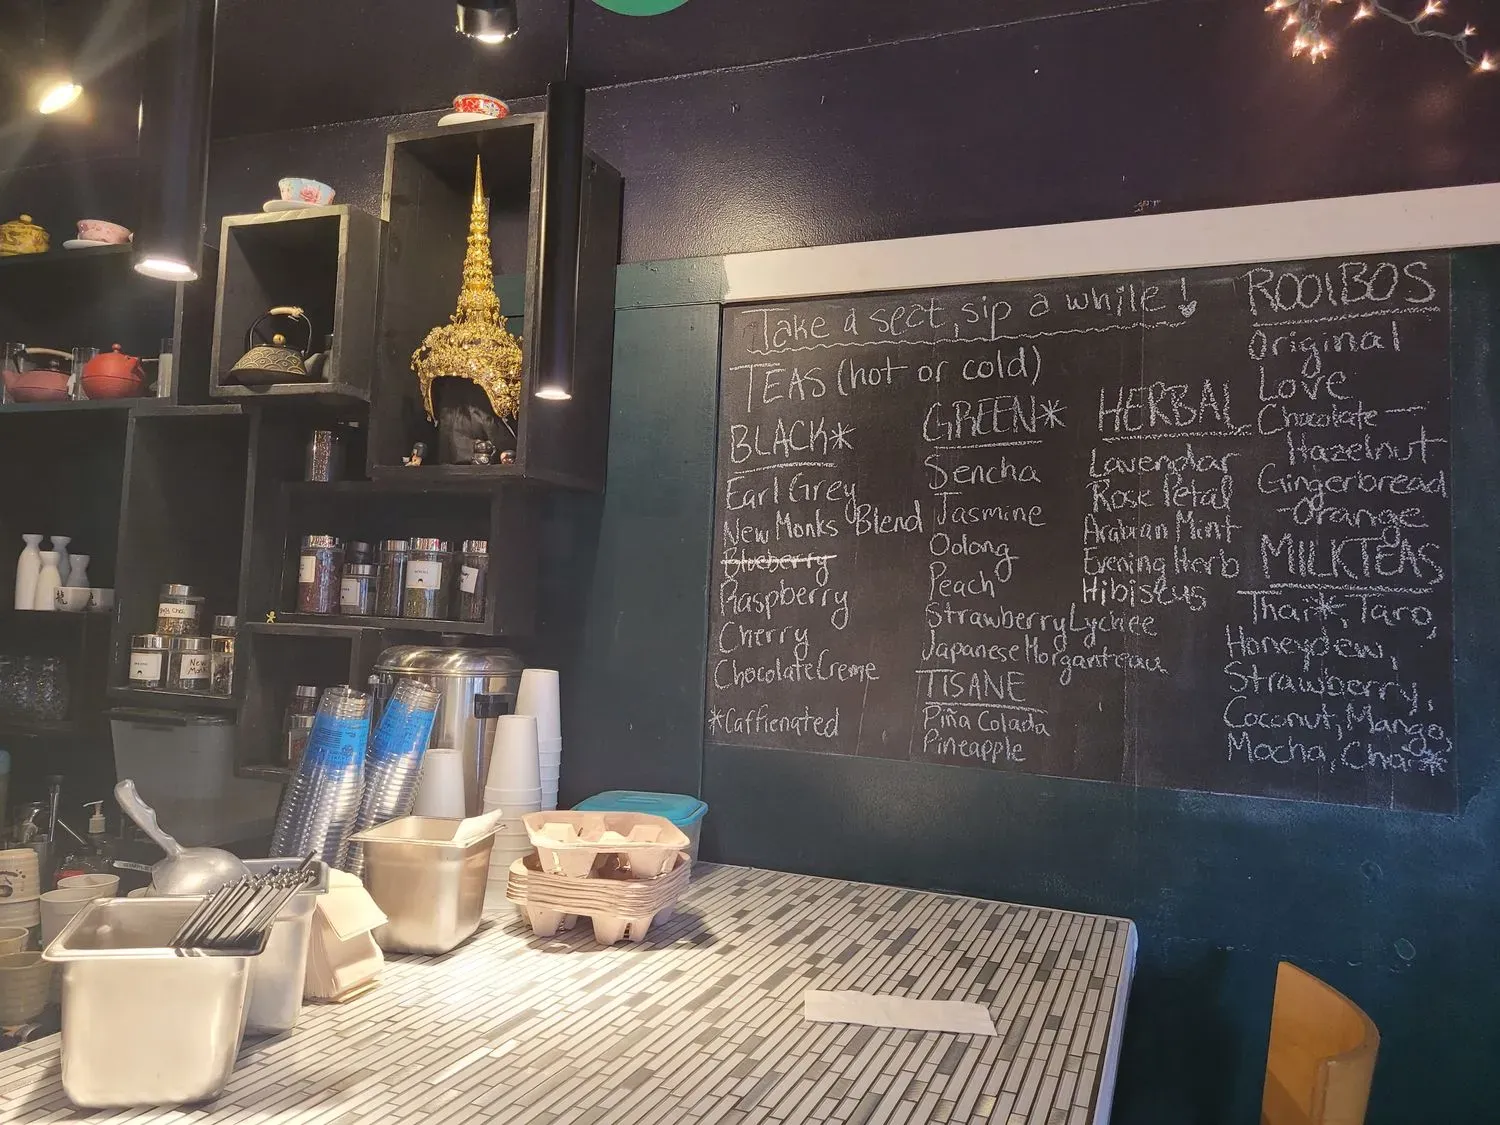 Take a seat, sip a while!
TEAS (hot or cold)
BLACK*
Earl Grey
New Monks Blend
Blueberry
Raspberry
Cherry
Chocolate Creme
*Caffienated
GREEN*
Sencha
Jasmine
Oolong
Peach
Strawberry Lychee
Japanese Morganteau
TISANE
Piña Colada
Pineapple
HERBAL
Lavendar
Rose Petal
Arabian Mint
Evening Herb
Hibiscus
ROOIBOS
Original
Love
Chocolate —
Hazelnut
Gingerbread
-Orange
MILKTEAS
Thai*, Taro,
Honeydew,
Strawberry,
Coconut, Mango,
Mocha, Chai*
New